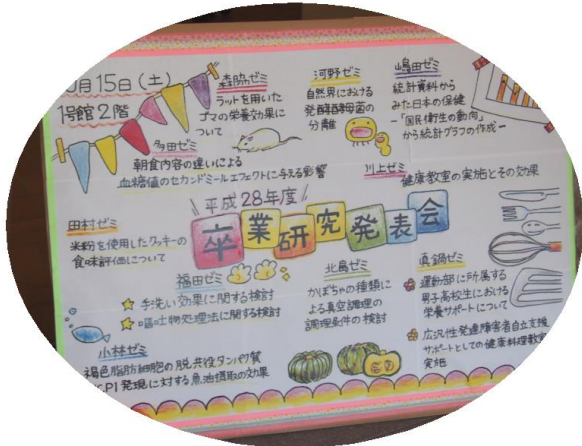 月15日(土)
1号館2階
森脇ゼミ
ラットを用いた
ゴマの栄養効果に
ついて
河野ゼミ
自然界における
発酵酵母菌の
分離
嶋田ゼミ
統計資料から
みた日本の保健
-「国民衛生の動向」
から統計グラフの作成-
多田ゼミ
朝食内容の違いによる
血糖値のセカンドミールエフェクトに与える影響
川上ゼミ
健康教室の実施とその効果
平成28年度
卒業研究発表会
田村ゼミ
米粉を使用したクッキーの
食味評価について
福田ゼミ
☆手洗い効果に関する検討
☆嘔吐物処理法に関する検討
北島ゼミ
かぼちゃの種類に
よる真空調理の
調理条件の検討
真鍋ゼミ
運動部に所属する
男子高校生における
栄養サポートについて
広汎性発達障害者自立支援
サポートとしての健康料理教室
実施
小林ゼミ
褐色脂肪細胞の脱共役タンパク質
CP1発現に対する魚油摂取の効果